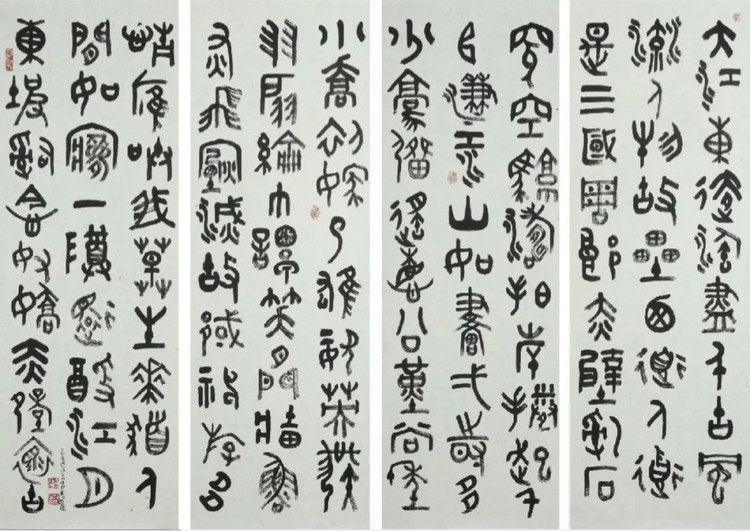 大江東去淘盡千古風
流人物故壘西邊人道
是三國周郎赤壁亂石
穿空驚濤拍岸捲起千
堆雪江山如畫弌時多
少豪傑遙想公瑾當年
小喬初嫁了雄姿英發
羽扇綸巾談笑間檣櫓
灰飛煙滅故國神遊多
情應笑我早生華髮人
間如夢一尊還酹江月
東坡詞念奴嬌赤壁懷古